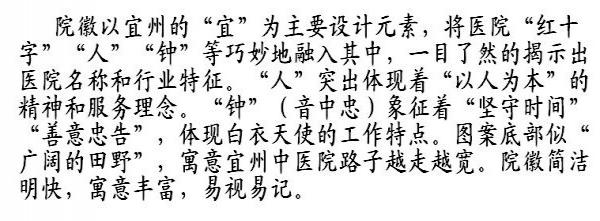 院徽以宜州的“宜”为主要设计元素，将医院“红十
字”“人”“钟”等巧妙地融入其中，一目了然的揭示出
医院名称和行业特征。“人”突出体现着“以人为本”的
精神和服务理念。“钟”（音中忠）象征着“坚守时间”
“善意忠告”，体现白衣天使的工作特点。图案底部似“
广阔的田野”，寓意宜州中医院路子越走越宽。院徽简洁
明快，寓意丰富，易视易记。